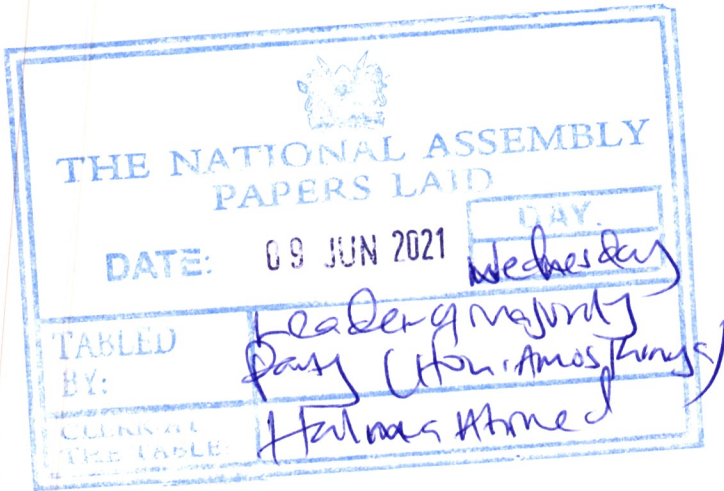 THE NATIONAL ASSEMBLY
PAPERS LAID
DATE: 09 JUN 2021
DAY.
Wednesday
TABLED BY:
Leader of majority
Party (Hon. Amos Kimunya)
CLERK AT THE TABLE:
Halima Ahmed